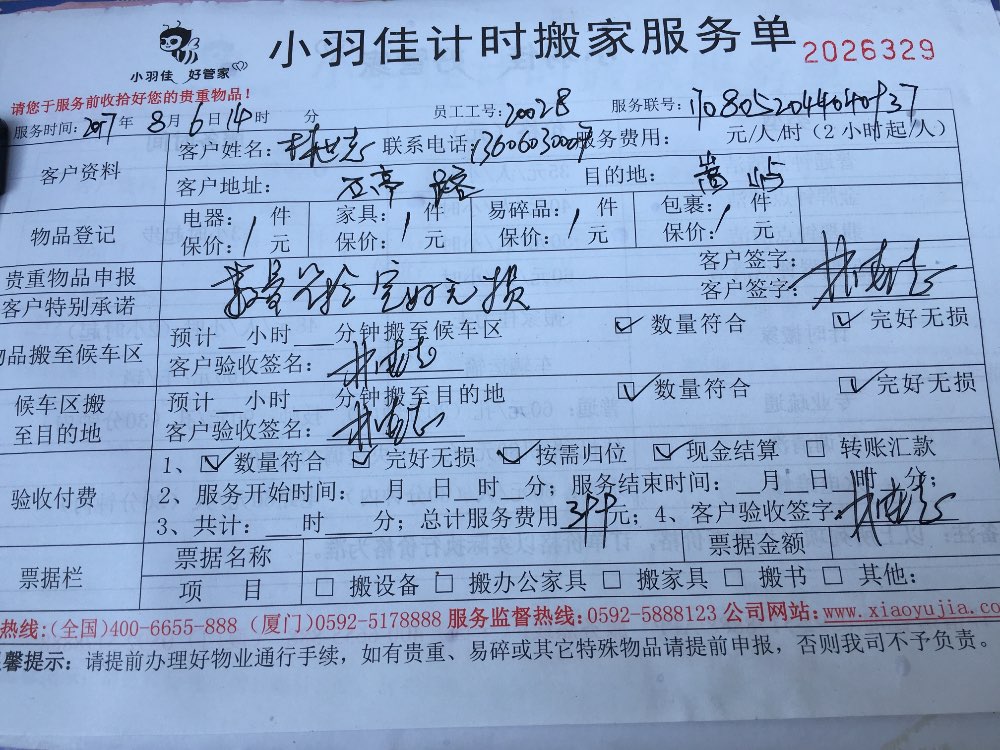 小羽佳 好管家
小羽佳计时搬家服务单 2026329
请您于服务前收拾好您的贵重物品！
服务时间：2017年 8月 6日 14时 分 员工工号：20028 服务联号：
客户资料
客户姓名： 联系电话： 服务费用： 元/人/时（2小时起/人）
客户地址： 目的地：嵩屿
物品登记
电器：1件 家具：1件 易碎品：1件 包裹：1件
保价： 元 保价： 元 保价： 元 保价： 元
贵重物品申报 客户签字：
客户特别承诺 数量 完好无损 客户签字：
物品搬至候车区
预计__小时___分钟搬至候车区 ☑ 数量符合 ☑ 完好无损
客户验收签名：
候车区搬
至目的地
预计__小时___分钟搬至目的地 ☑ 数量符合 ☑ 完好无损
客户验收签名：
验收付费
1、☑ 数量符合 ☑ 完好无损 ☑ 按需归位 ☑ 现金结算 □ 转账汇款
2、服务开始时间：__月__日__时__分；服务结束时间：__月__日__时__分；
3、共计：___时 分；总计服务费用 元；4、客户验收签字：
票据栏
票据名称 票据金额
项 目 □ 搬设备 □ 搬办公家具 □ 搬家具 □ 搬书 □ 其他：
热线：(全国)400-6655-888 (厦门)0592-5178888 服务监督热线：0592-5888123 公司网站：www.xiaoyujia.co
馨提示：请提前办理好物业通行手续，如有贵重、易碎或其它特殊物品请提前申报，否则我司不予负责。